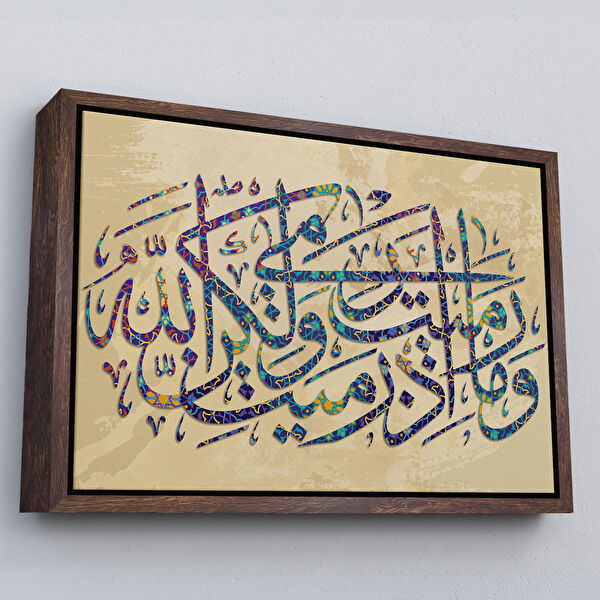 وَمَا رَمَيْتَ إِذْ رَمَيْتَ وَلَكِنَّ اللَّهَ رَمَى